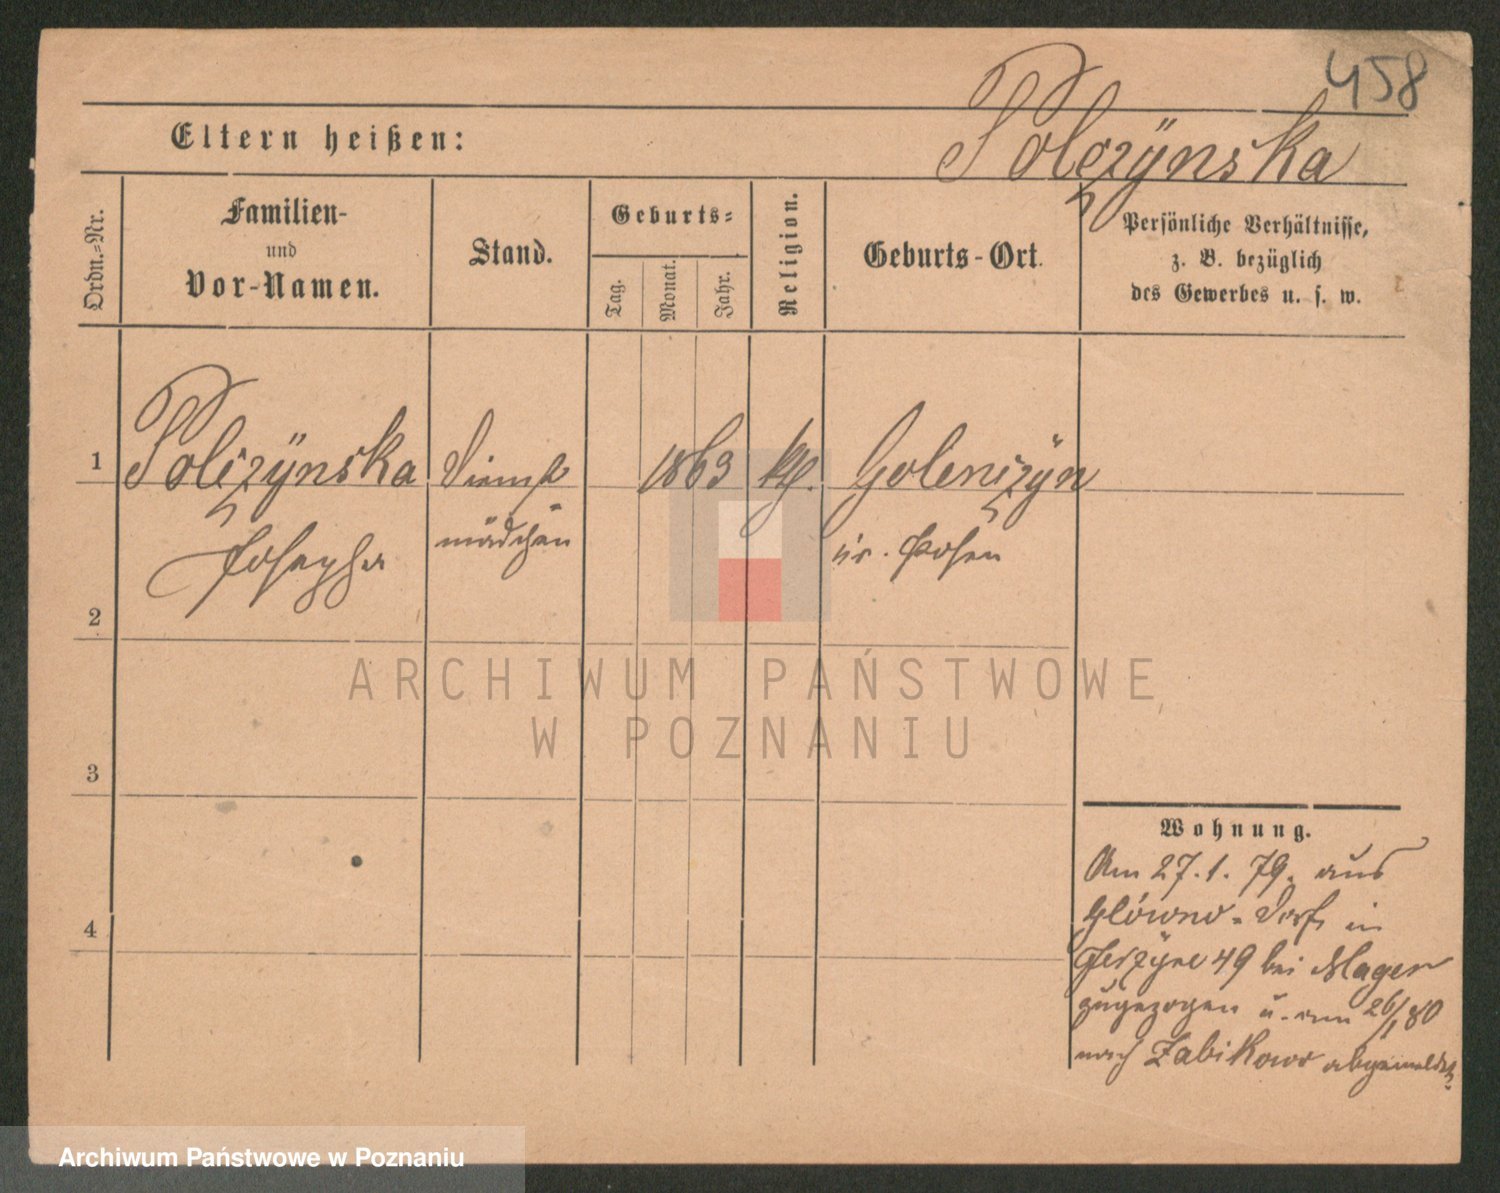 458
Eltern heißen:
Polczÿnska
Ordn.-Nr.
Familien-
und
Vor-Namen.
Stand.
Geburts-
Tag.
Monat.
Jahr.
Religion.
Geburts-Ort.
Persönliche Verhältnisse,
z. B. bezüglich
des Gewerbes u. s. w.
1
Polczÿnska
Josepha
Dienst
mädchen
1863
kth.
Golenczÿn
kr. Posen
2
3
4
Wohnung.
Am 27.1.79. aus
Glówno-Dorf in
Jerzÿce 49 bei Mager
zugezogen u. am 26/1 80
nach Zabikowo abgemeldet.
ARCHIWUM PAŃSTWOWE
W POZNANIU
Archiwum Państwowe w Poznaniu